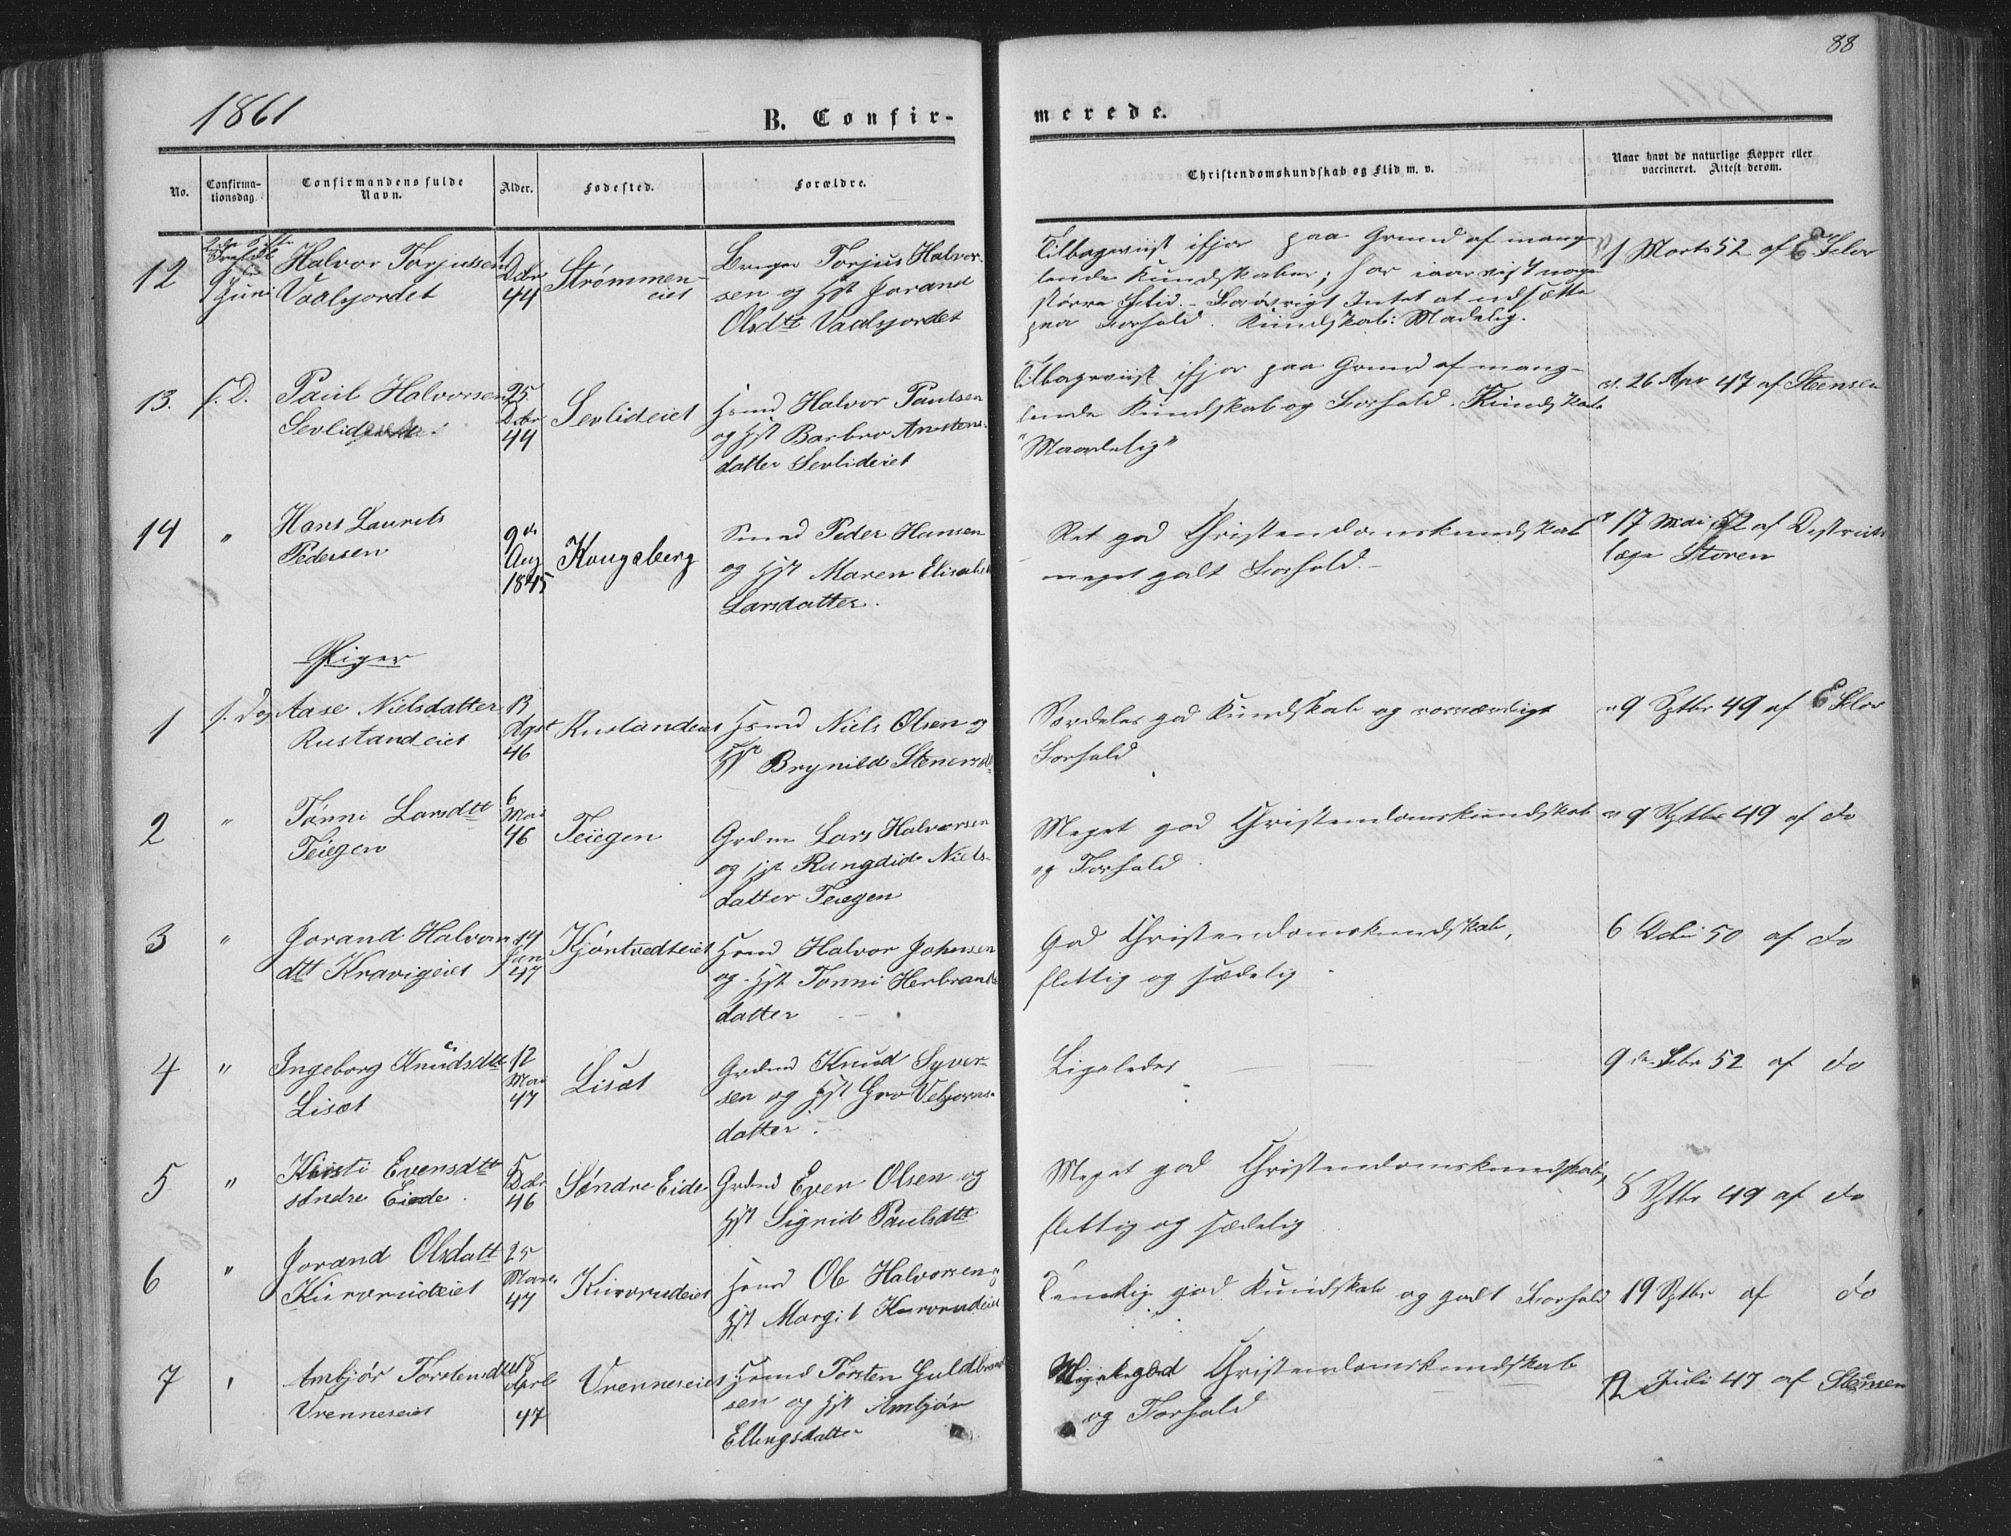 88
1861
B. Confir-
merede.
No.
Confirma-
tionsdag
Confirmandens fulde
Navn.
Alder.
Fødested.
Forældre.
Christendomskundskab og Flid m. v.
Naar havt de naturlige Kopper eller
vaccineret. Attest derom.
12
9 Juni
Halvor Torjussen
Vaalsjordet
1
Dcbr
44
Strømmen-
eiet
Torjus Halvor-
sen og Hst Jorand
Olsdtt Vaalsjordet
Tilbageviist ifjor paa Grund af mang-
lende Kundskaber; har iaar viist noget
større Flid. Forøvrigt Intet at udsætte
paa Forhold. Kundskab: Maadelig.
1 Marts 52 af E Flor
13.
s. D.
Paul Halvorsen
25
Dcbr
44
Sevlideiet
Hsmd Halvor Paulsen
og Hst Barbro Anstens-
datter Sevlideiet
Tilbageviist ifjor paa Grund af mang-
lende Kundskab og Forhold. Kundskab
"Maadelig"
26 Apr 47 af Steensen
14
"
Hans Laurits
Pedersen
9de
Aug
1845
Kongsberg
Smed Peder Hansen
og Hst Maren Elisabet
Larsdatter.
Ret god Christendomskundskab
meget godt Forhold.
17 Mai 52 af Destricts
læge Storen
Piger
1
s. Dag
Aase Nielsdatter
Rustandeiet
13
Agst
46
Rustandeiet
Hsmd Niels Olsen og
Hst Brynild Stenersdtt
Særdeles god Kundskab og
Forhold
9 Sptbr 49 af E Flor
2
"
Tønni Larsdtt
Teiegen
6
Mai
46
Teiegen
Grdm Lars Halvorsen
og Hst Rangdid Niels-
datter Teiegen
Meget god Christendomskundskab
og Forhold
9 Sptbr 49 af do
3
"
Jorand Halvors
dtt Kravigeiet
14
Jan
47
Kjøntvedteiet
Hsmd Halvor Johnsen
og Hst Tønni Herbrands
datter
God Christendomskundskab,
flittig og sædelig
6 50 af do
4
"
Ingeborg Knudsdtt
Lisæt
12
Mai
47
Lisæt
Grdmd Knud Syver-
sen og Hst Gro Vebjørns-
datter
Ligeledes
9de Febr 52 af do
5
"
Kirsti Evensdtt
søndre Eide
5
Dcbr
46
Søndre Eide
Grdmd Even Olsen og
Hst Sigrid Paulsdtt
Meget god Christendomskundskab,
flittig og sædelig
8 Sptbr 49 af do
6
"
Jorand Olsdatt
Kurvrudeiet
25
Marts
47
Kurvrudeiet
Hsmd Ole Halvorsen og
Hst Margit Kurvrudeiet
Temelig god Kundskab og godt Forhold
19 Sptbr af do
7
"
Ambjør Torstensdtt
Vrenneseiet
15
Aprl
47
Vrenneseiet
Hsmd Torsten Guldbrand
sen og Hst Ambjør
Ellingsdatter
Christendomskundskab
og Forhold
12 Juli 47 af Stensen